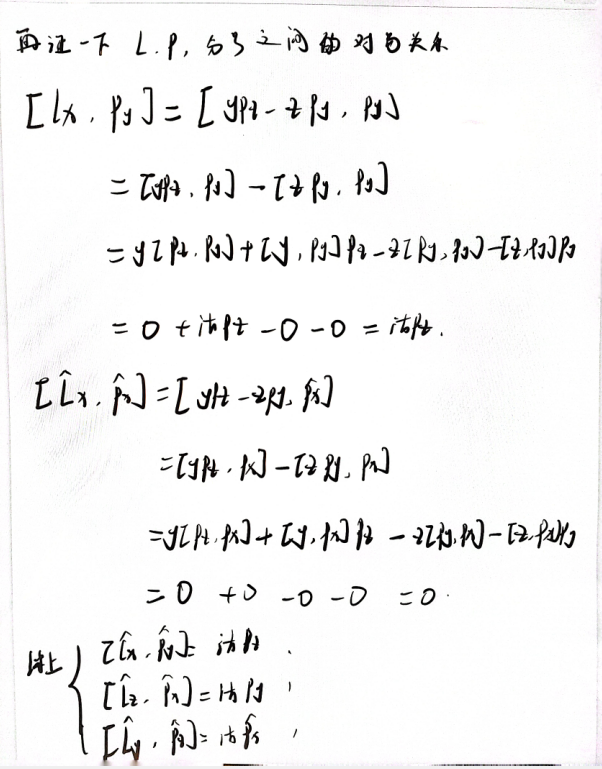 再证一下 L.P, 分量之间的对易关系
[lx, py] = [ypz - zpy, py]
= [ypz, py] - [zpy, py]
= y[pz, py] + [y, py]pz - z[py, py] - [z, py]py
= 0 + iħpz - 0 - 0 = iħpz.
[L̂x, p̂x] = [ypz - zpy, p̂x]
= [ypz, px] - [zpy, px]
= y[pz, px] + [y, px]pz - z[py, px] - [z, px]py
= 0 + 0 - 0 - 0 = 0.
综上 { [L̂x, p̂y] = iħp̂z
[L̂z, p̂x] = iħpy
[L̂y, p̂z] = iħp̂x